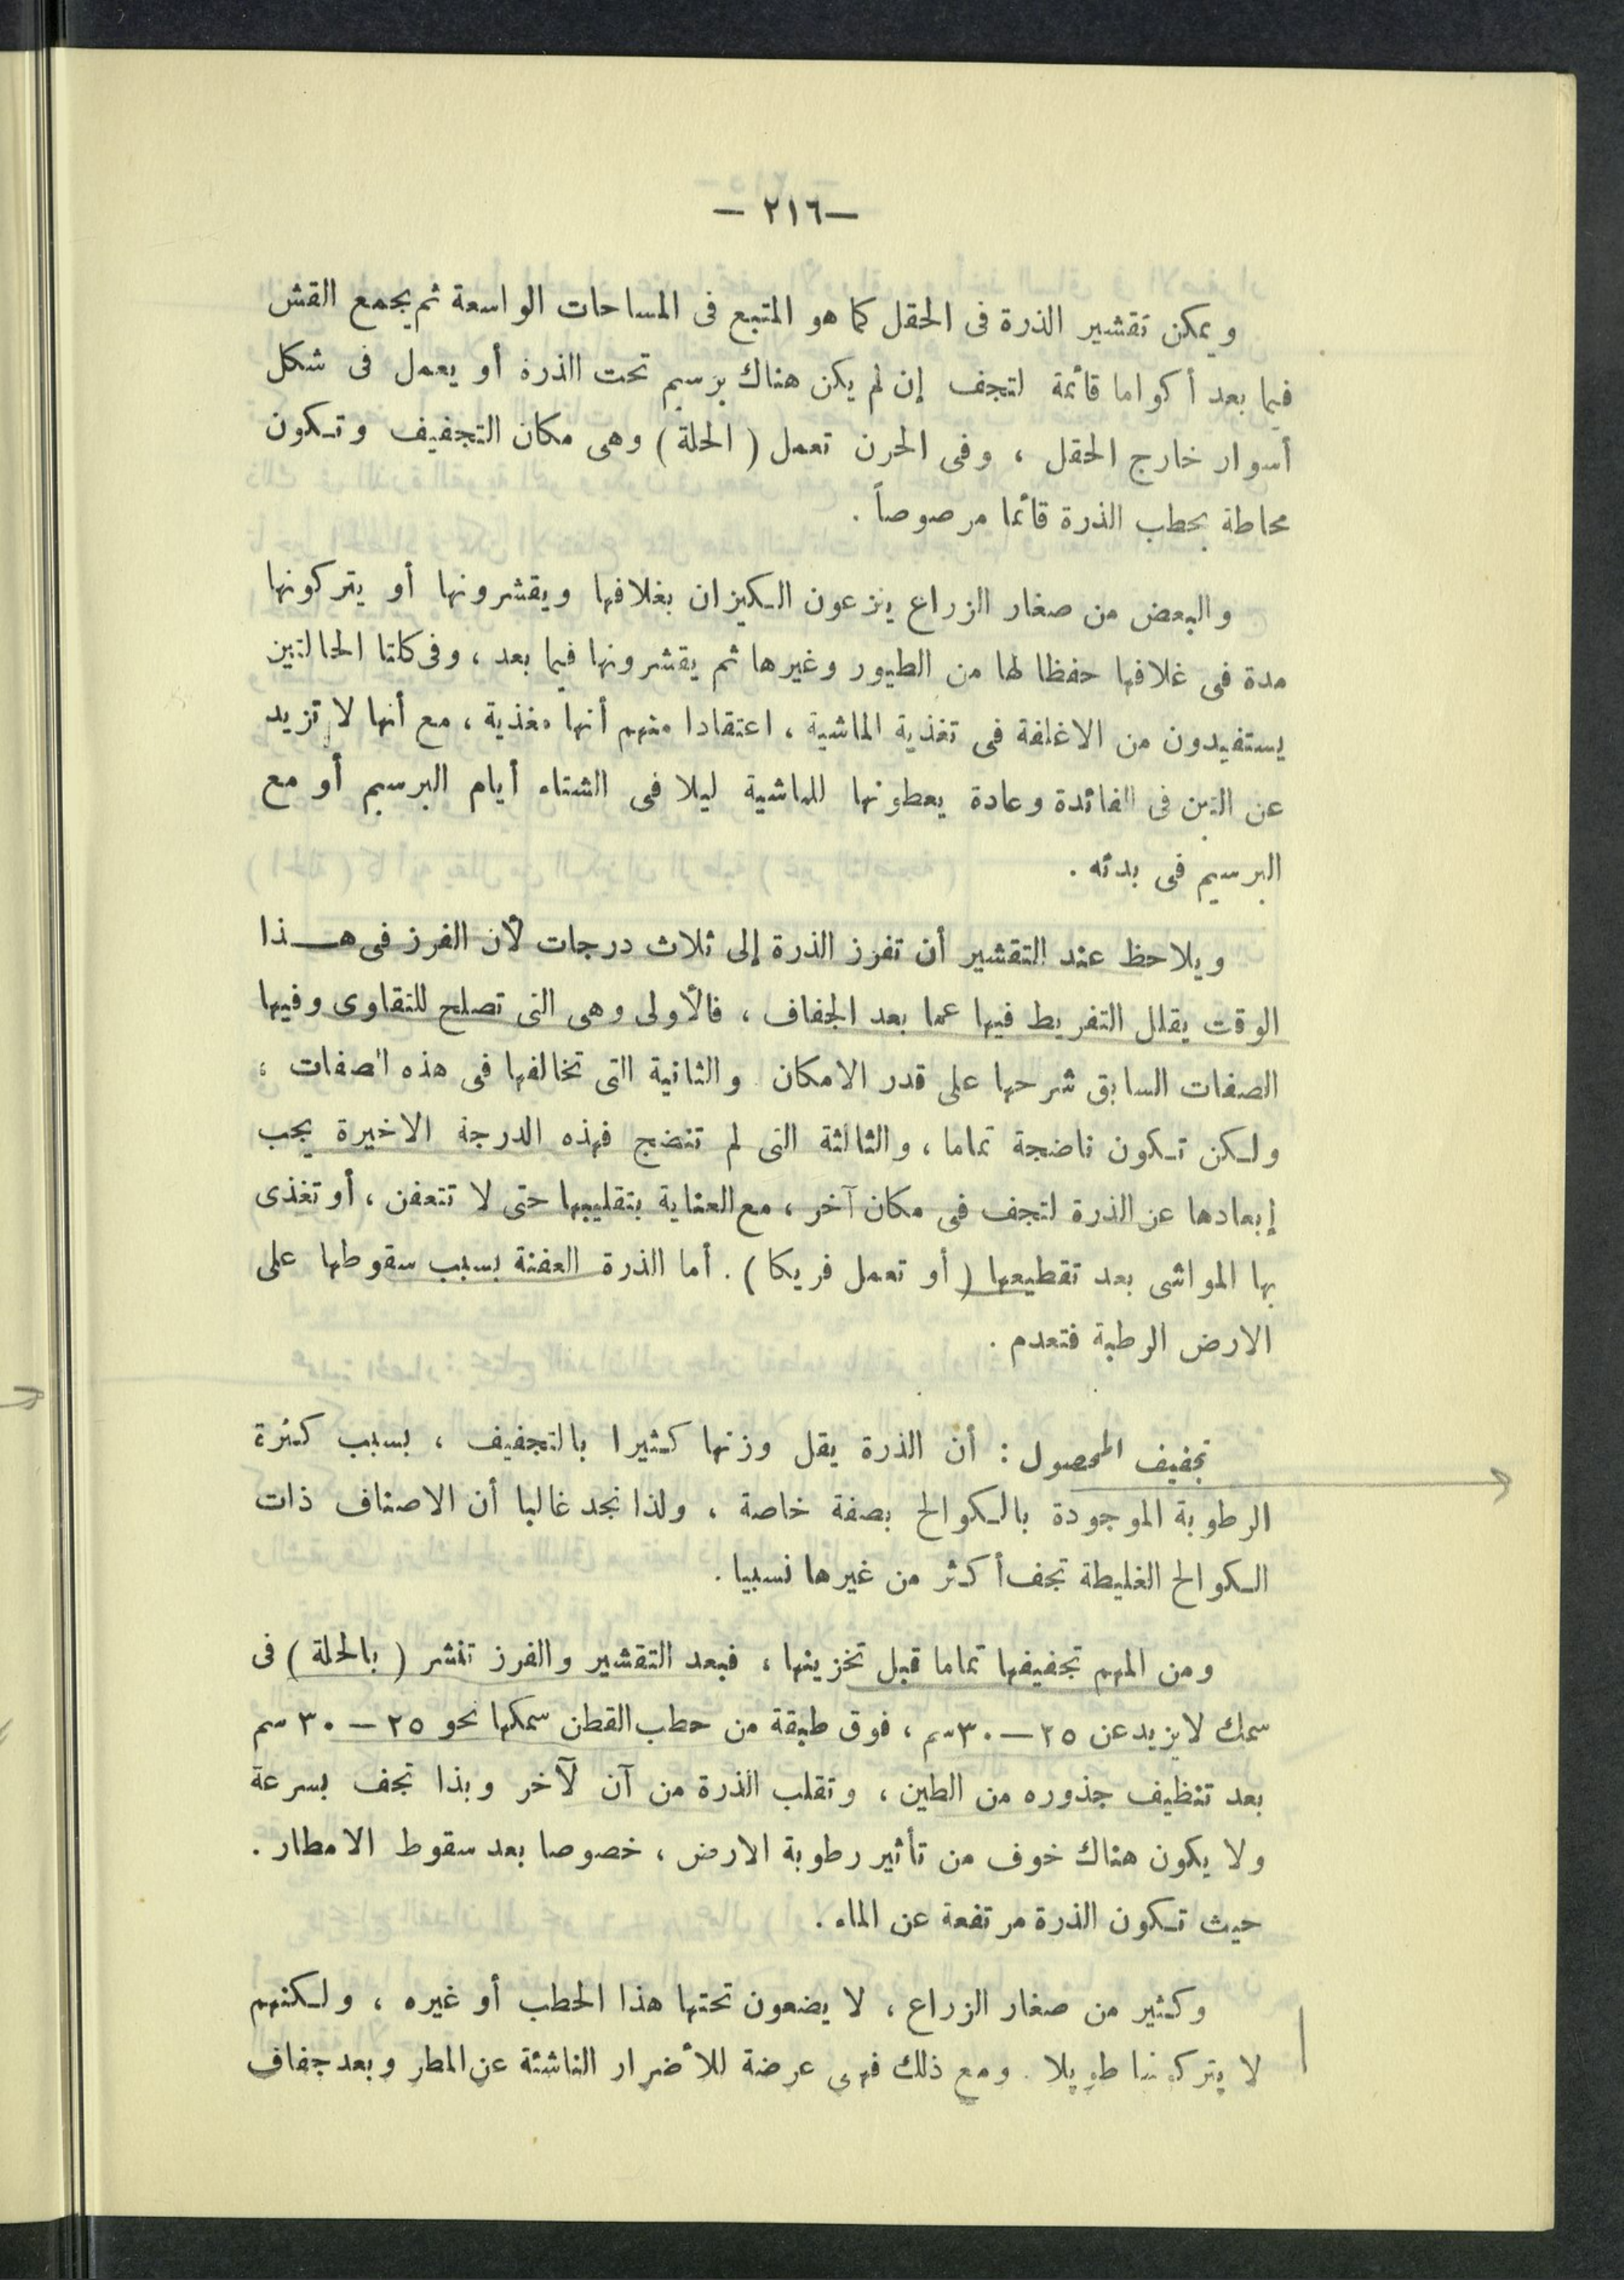 —٢١٦ —
ويمكن تقشير الذرة فى الحقل كما هو المتبع فى المساحات الواسعة ثم يجمع القش
فيما بعد أكواما قائمة لتجف إن لم يكن هناك برسيم تحت الذرة أو يعمل فى شكل
أسوار خارج الحقل ، وفى الجرن تعمل ( الحلة ) وهى مكان التجفيف وتكون
محاطة بحطب الذرة قائما مرصوصاً .
والبعض من صغار الزراع ينزعون الكيزان بغلافها ويقشرونها أو يتركونها
مدة فى غلافها حفظا لها من الطيور وغيرها ثم يقشرونها فيما بعد ، وفى كلتا الحالتين
يستفيدون من الاغلفة فى تغذية الماشية ، اعتقادا منهم أنها مغذية ، مع أنها لا تزيد
عن التبن فى الفائدة وعادة يعطونها للماشية ليلا فى الشتاء أيام البرسيم أو مع
البرسيم فى بدئه .
ويلاحظ عند التقشير أن تفرز الذرة إلى ثلاث درجات لأن الفرز فى هـــذا
الوقت يقلل التفريط فيها عما بعد الجفاف ، فالأولى وهى التى تصلح للتقاوى وفيها
الصفات السابق شرحها على قدر الامكان . والثانية التى تخالفها فى هذه الصفات ،
ولكن تكون ناضجة تماما ، والثالثة التى لم تنضج فهذه الدرجة الاخيرة يجب
إبعادها عن الذرة لتجف فى مكان آخر ، مع العناية بتقليبها حتى لا تتعفن ، أو تغذى
بها المواشى بعد تقطيعها ( أو تعمل فريكا ) . أما الذرة العفنة بسبب سقوطها على
الارض الرطبة فتعدم .
تجفيف المحصول : أن الذرة يقل وزنها كثيرا بالتجفيف ، بسبب كثرة
الرطوبة الموجودة بالكوالح بصفة خاصة ، ولذا نجد غالبا أن الاصناف ذات
الكوالح الغليطة تجف أكثر من غيرها نسبيا .
ومن المهم تجفيفها تماما قبل تخزينها ، فبعد التقشير والفرز تنشر ( بالحلة ) فى
سمك لا يزيد عن ٢٥ — ٣٠ سم ، فوق طبقة من حطب القطن سمكها نحو ٢٥ — ٣٠ سم
بعد تنظيف جذوره من الطين ، وتقلب الذرة من آن لآخر وبذا تجف بسرعة
ولا يكون هناك خوف من تأثير رطوبة الارض ، خصوصا بعد سقوط الامطار .
حيث تكون الذرة مرتفعة عن الماء .
وكثير من صغار الزراع ، لا يضعون تحتها هذا الحطب أو غيره ، ولكنهم
لا يتركونها طويلا . ومع ذلك فهى عرضة للأضرار الناشئة عن المطر وبعد جفاف